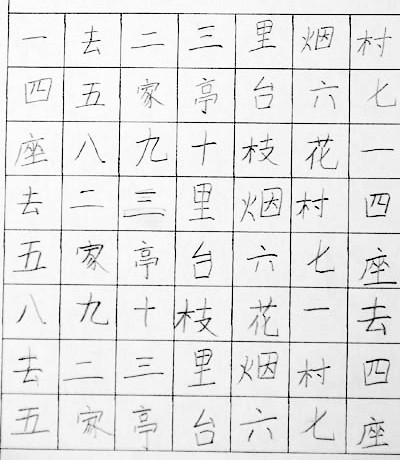 一去二三里烟村
四五家亭台六七
座八九十枝花一
去二三里烟村四
五家亭台六七座
八九十枝花一去
去二三里烟村四
五家亭台六七座